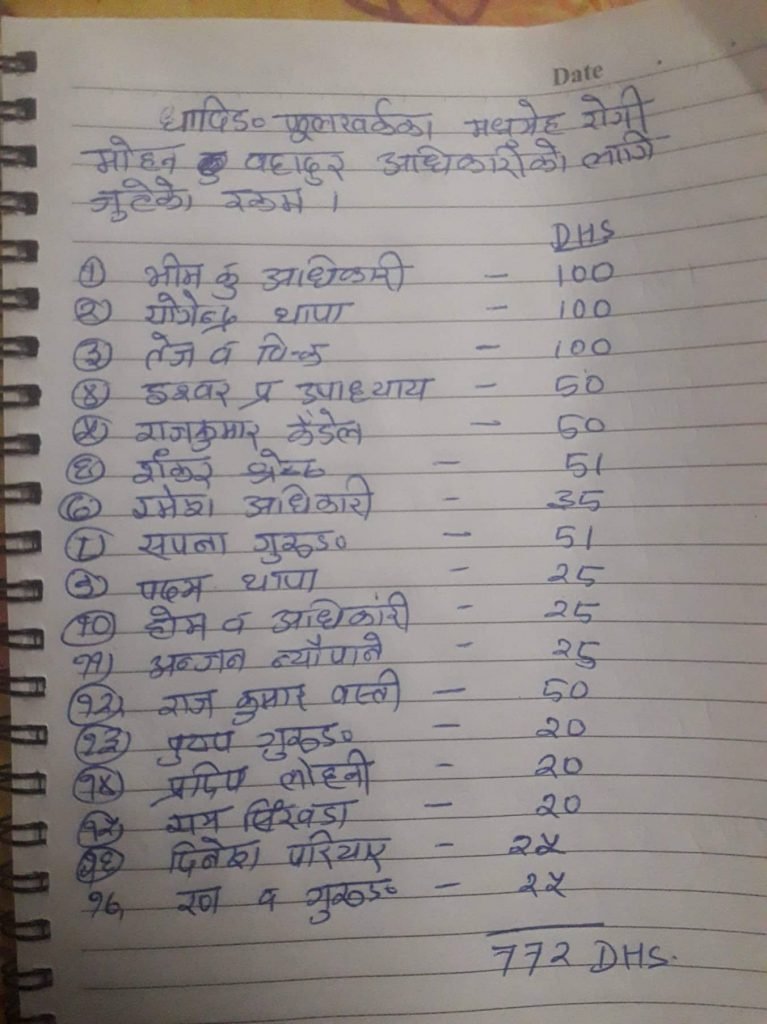 Date
धादिङ॰ फूलखर्कका मधुमेह रोगी
मोहन बहादुर अधिकारीको लागि
जुटेको रकम ।
DHS
१ भीम कु अधिकारी - 100
२ योगेन्द्र थापा - 100
३ तेज व वि-क - 100
४ इश्वर प्र उपाध्याय - 50
५ राजकुमार कँडेल - 50
६ शंकर श्रेष्ठ - 51
७ रमेश अधिकारी - 35
८ सपना गुरूङ॰ - 51
९ पदम थापा - 25
१० होम व अधिकारी - 25
११) अन्जान न्यौपाने - 25
१२ राज कुमार वस्ती - 50
१३ पुष्प गुरूङ॰ - 20
१४ प्रदिप लोहनी - 20
१५ - 20
१६ दिनेश परियार - २५
१७ रन व गुरूङ॰ - २५
772 DHS.